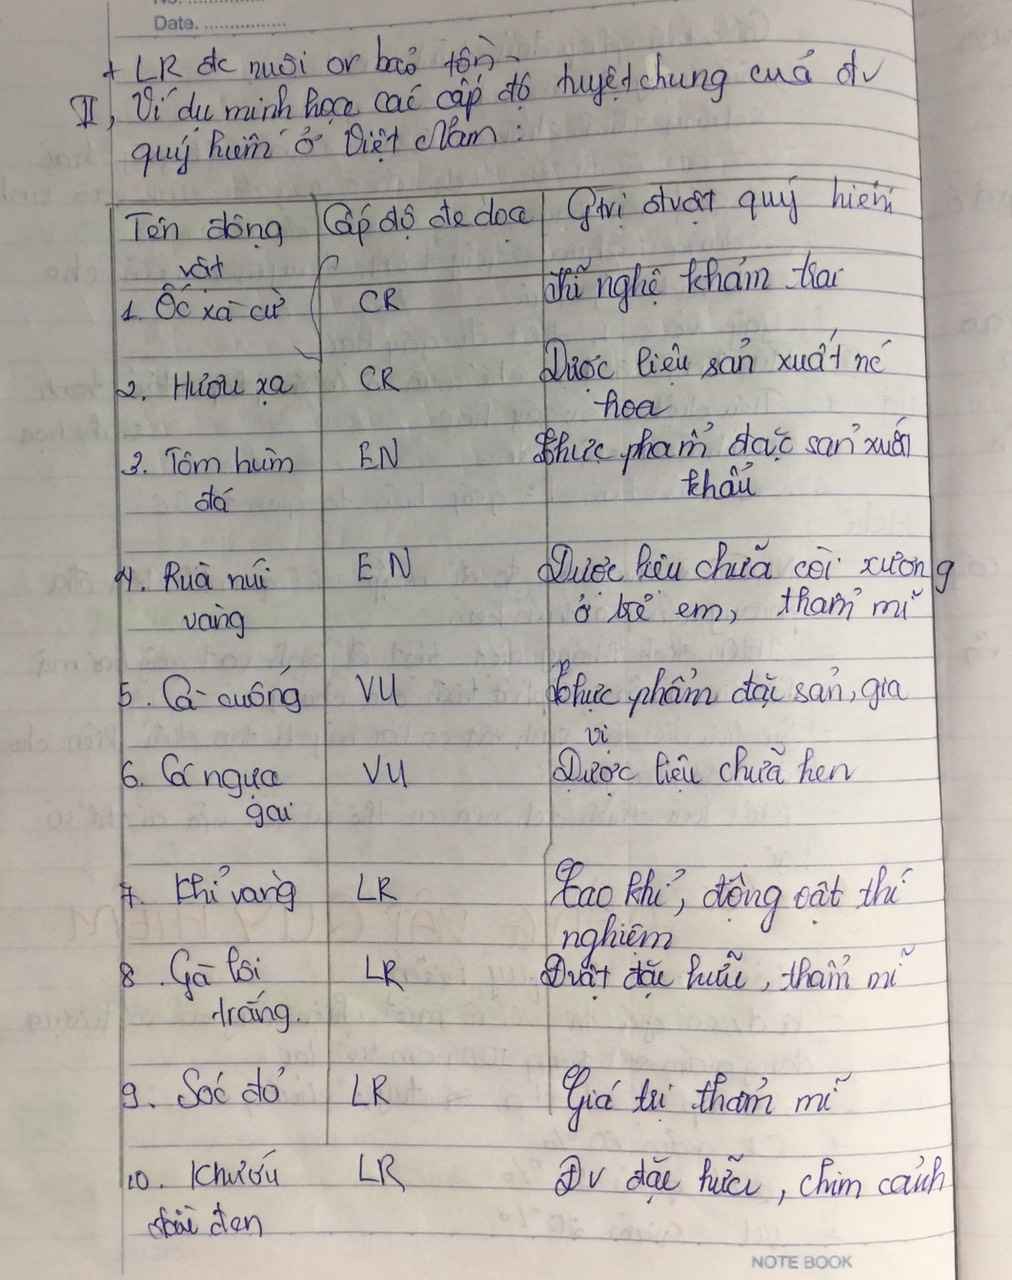 Date. ................
+ LR đc nuôi or bảo tồn
II, Ví dụ minh họa các cấp độ tuyệt chung của đv
quý hiếm ở Việt Nam :
Tên động vật | Cấp độ đe dọa | Gtrị đvật quý hiếm
1. Ốc xà cừ | CR | Kĩ nghệ khảm trai
2. Hươu xạ | CR | Dược liệu sản xuất nc
hoa
3. Tôm hùm | EN | Thực phẩm đặc sản xuất
đá | khẩu
4. Rùa núi | EN | Dược liệu chữa còi xương
vàng | ở trẻ em, thẩm mĩ
5. Cà cuống | VU | Thực phẩm đặc sản, gia
vị
6. Cá ngựa | VU | Dược liệu chữa hen
gai
7. Khỉ vàng | LR | Cao khỉ, động vật thí
nghiệm
8. Gà lôi | LR | Đvật đặc hữu, thẩm mĩ
trắng.
9. Sóc đỏ | LR | Giá trị thẩm mĩ
10. Khướu | LR | ĐV đặc hữu, chim cảnh
đầu đen
NOTE BOOK